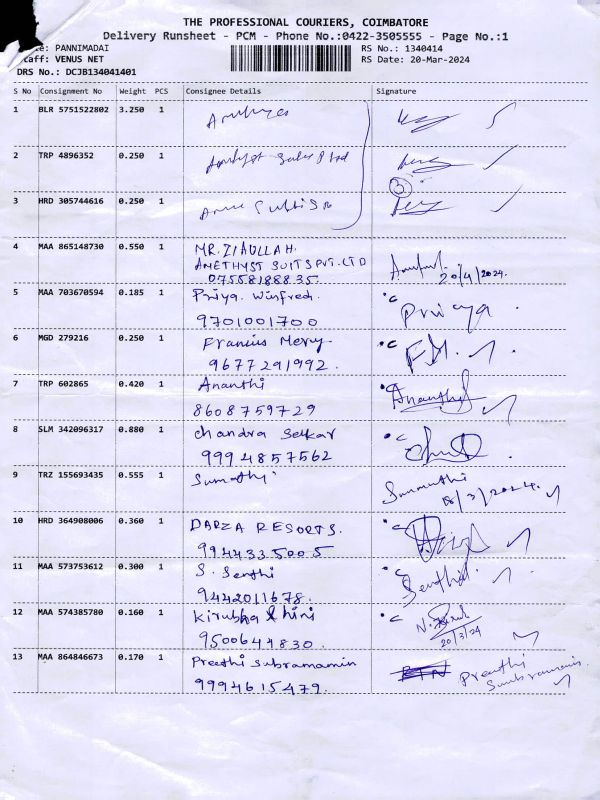 THE PROFESSIONAL COURIERS, COIMBATORE
Delivery Runsheet - PCM - Phone No.:0422-3505555 - Page No.:1
: PANNIMADAI RS No.: 1340414
taff: VENUS NET RS Date: 20-Mar-2024
DRS No.: DCJB134041401
S No Consignment No Weight PCS Consignee Details Signature
1 BLR 5751522802 3.250 1
2 TRP 4896352 0.250 1
3
3 HRD 305744616 0.250 1
4 MAA 865148730 0.550 1 MR. ZIAULLAH.
AMETHYST SUITS PVT. LTD
07558188835. 20/4/2024.
5 MAA 703670594 0.185 1 Priya. Winfred. Priyaya
9701001700
6 MGD 279216 0.250 1 Francis Mery. F.M.
9677291992.
7 TRP 602865 0.420 1 Ananthi Ananthy
8608759729
8 SLM 342096317 0.880 1 Chandra Sekar
9994857562
9 TRZ 155693435 0.555 1 Sumathi Sumathi
18/3/2024.
10 HRD 364908006 0.360 1 DARZA RESORTS.
9944335005
11 MAA 573753612 0.300 1 S. Senthi Senthil.
9442011678.
12 MAA 574385780 0.160 1 Kirubha
9500644830. 20/3/24
13 MAA 864846673 0.170 1 Preethi Subramamin Preethi
9994615479.